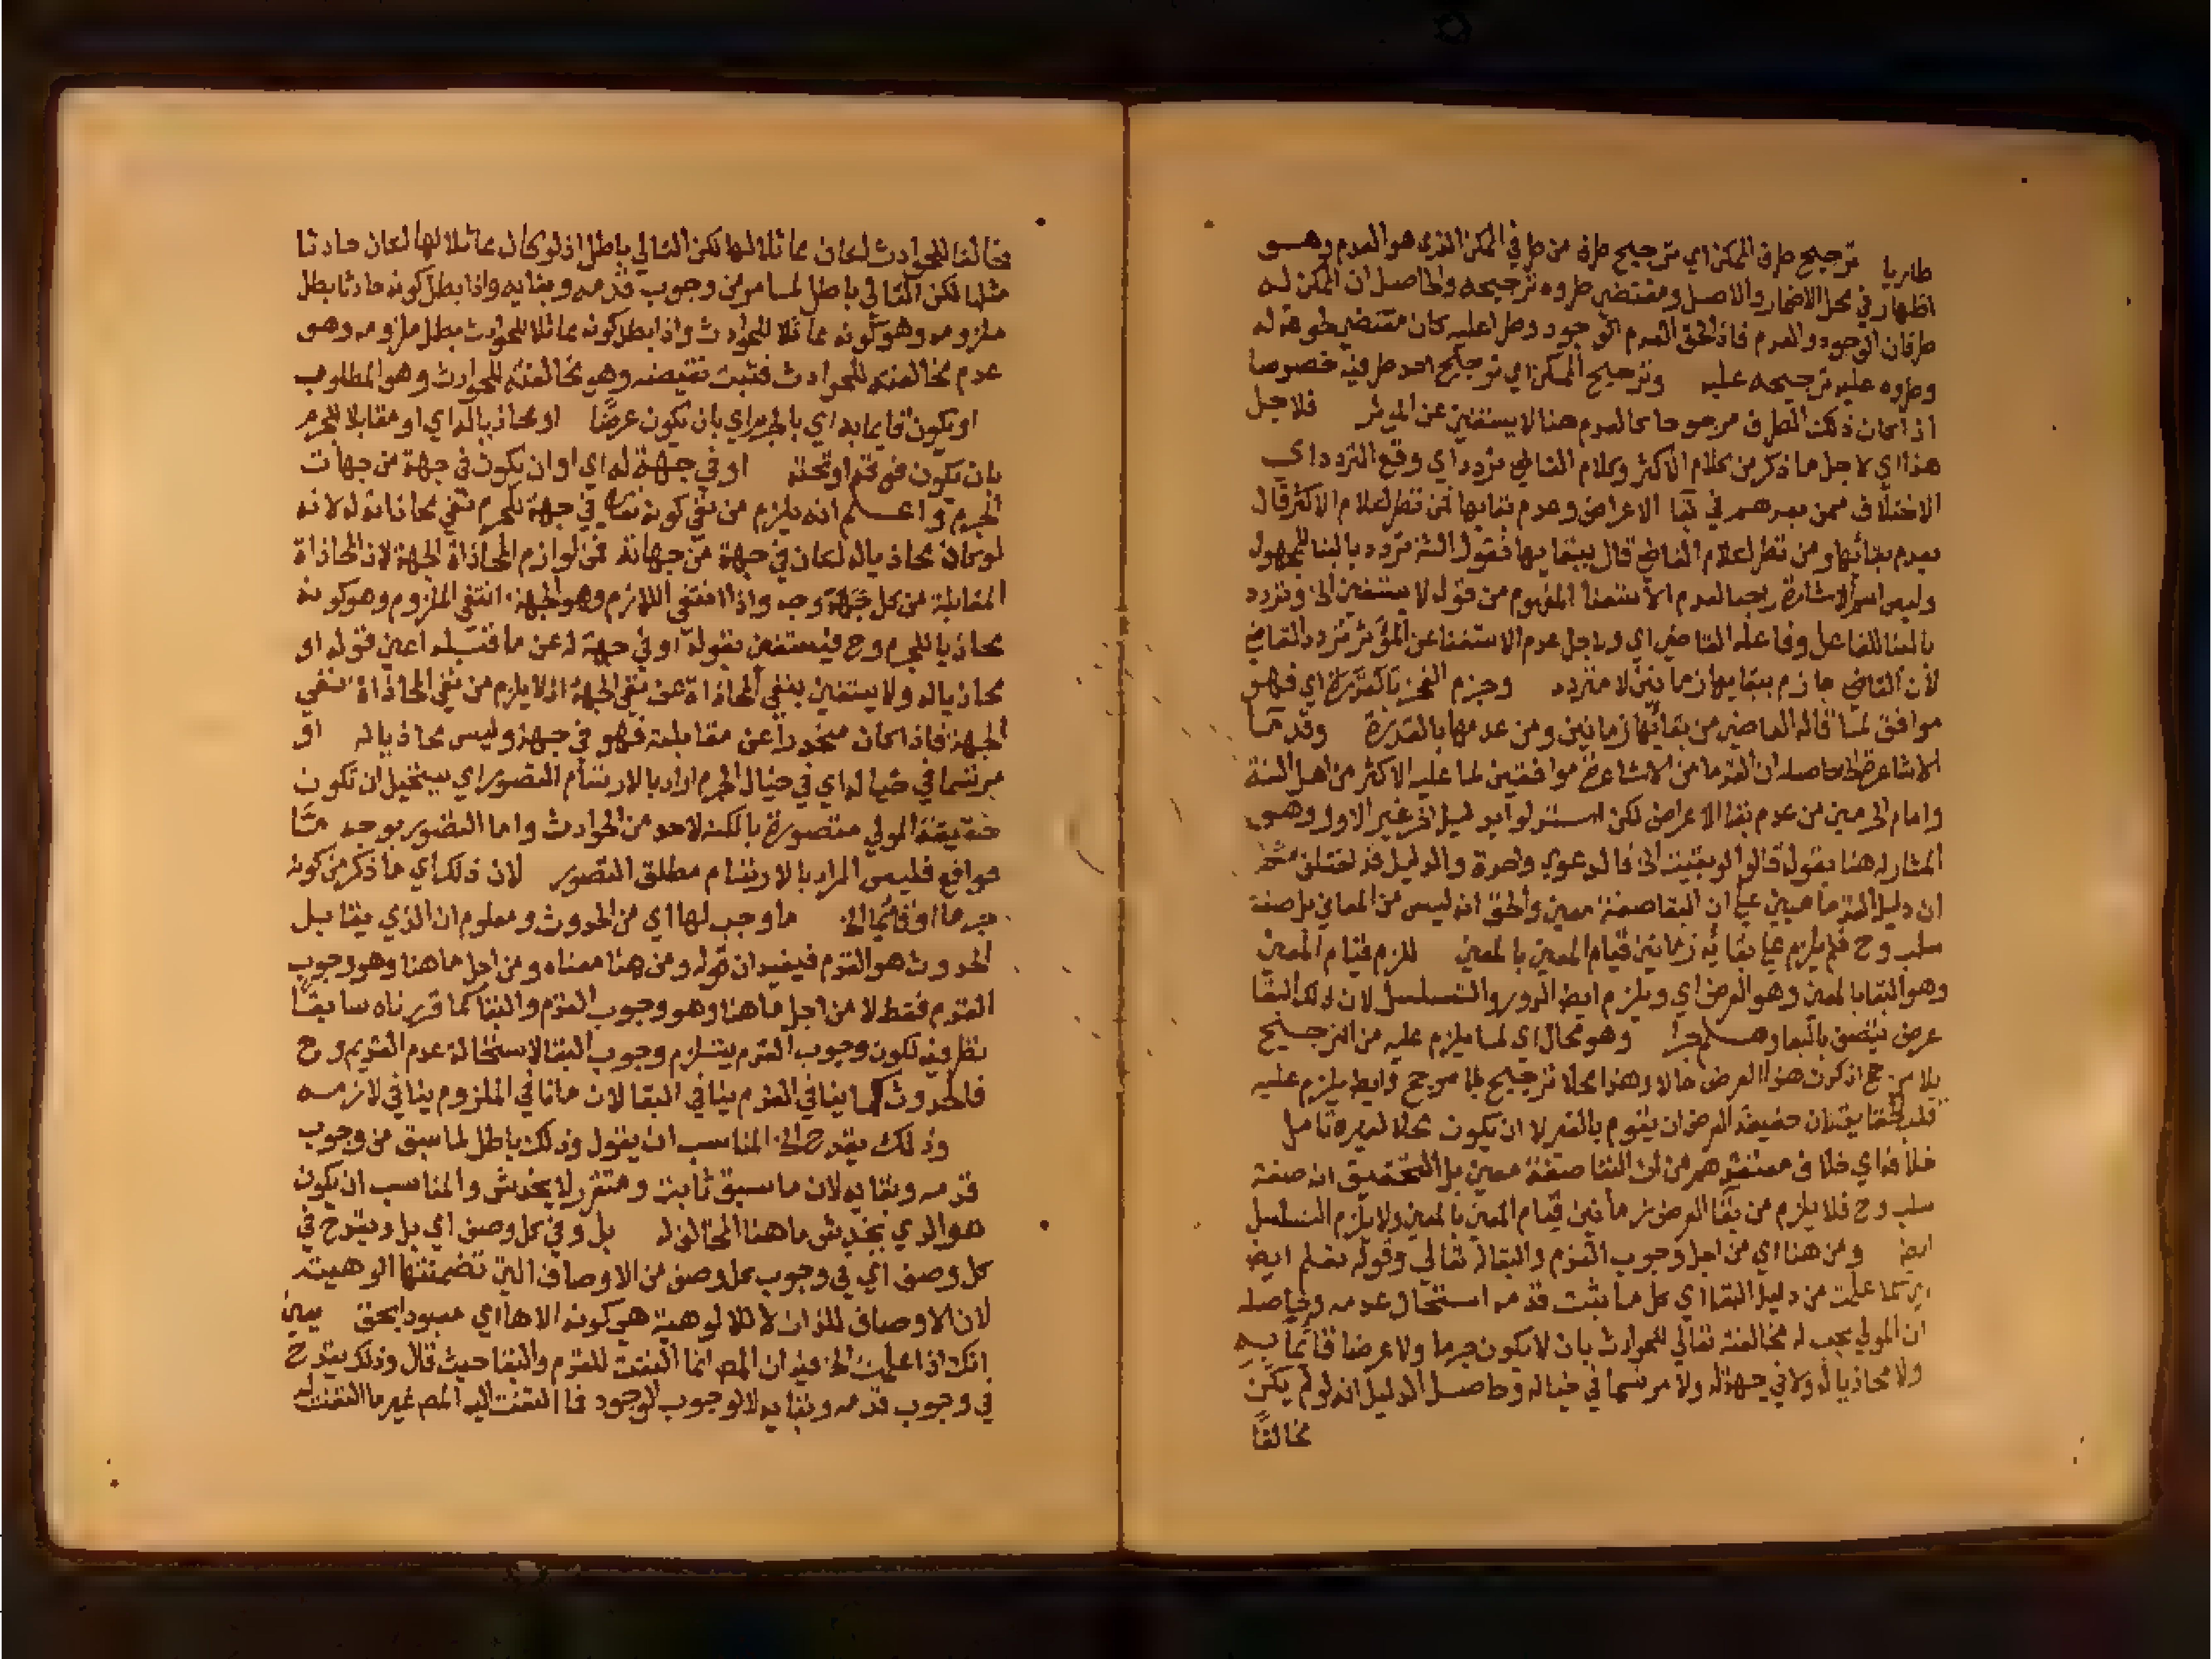 طاريا ترجيح طرف الممكن اي ترجيح طرف من طرفي الممكن الذي هو العدم وهو
اظهار في محل الاضمار والاصل ومقتضى طروه ترجيحه والحاصل ان الممكن له
طرفان الوجود والعدم فاذا لحق العدم الوجود وطرا عليه كان مقتضى لحوقه له
وطروه عليه ترجيحه عليه وترجيح الممكن اي ترجيح احد طرفيه خصوصا
اذا كان ذلك الطرف مرجوحا كالعدم هنا لا يستغني عن الموثر فلاجل
هذا اي لاجل ما ذكر من كلام الاكثر وكلام القاضي تردد اي وقع التردد اي
الاختلاف ممن بعدهم في بقا الاعراض وعدم بقايها فمن نظر لكلام الاكثر قال
بعدم بقائها ومن نظر لكلام القاضي قال ببقايها فقول الش تردد بالبنا للمجهول
وليس اسم الاشارة راجعا لعدم الاستغنا المفهوم من قوله لا يستغني الخ وتردد
بالبنا للفاعل وفاعله القاضي اي ولاجل عدم الاستغنا عن المؤثر تردد القاضي
لان القاضي جازم ببقايها زمانين لا متردد وجزم الفخر بالقدرة اي فهو
موافق لما قاله القاضي من بقائها زمانين ومن عدمها بالقدرة وقدما
الاشاعرة الخ حاصله ان القدما من الاشاعرة موافقين لما عليه الاكثر من اهل السنة
وامام الحرمين من عدم بقا الاعراض لكن استدلوا بدليل اخر غير الاول وهو
المشار له هنا بقوله قالوا لو بقيت الخ فالدعوي واحدة والدليل قد اختلف ثم
ان دليل القدما مبني علي ان البقا صفة معني والحق انه ليس من المعاني بل صفة
سلب وح فلم يلزم علي بقايه زمانين قيام المعني بالمعني للزم قيام المعني
وهو البقا بالمعني وهو العرض اي ويلزم ايض الدور والتسلسل لان ذلك البقا
عرض يتصف بالبقا وهلم جرا وهو محال اي لما يلزم عليه من الترجيح
بلا مرجح اذ كون هذا العرض حالا وهذا محلا ترجيح بلا مرجح وايض يلزم عليه
قلب الحقايق لان حقيقة العرض ان يقوم بالغير لا ان يكون محلا لغيره تامل
خلافه اي خلاف معتقدهم من ان البقا صفة معني بل التحقيق انه صفة
سلب وح فلا يلزم من بقا العرض زمانين قيام المعني بالمعني ولا يلزم التسلسل
ايض ومن هنا اي من اجل وجوب القدم والبقا له تعالي وقوله تعلم ايض
اي كما علمت من دليل البقا اي كل ما يثبت قدمه استحال عدمه وحاصله
ان المولي يجب له مخالفته تعالي للحوادث بان لا يكون جرما ولا عرضا قائما به
ولا محاذيا له ولا في جهة له ولا مرتسما في خياله وحاصل الدليل انه لو لم يكن
مخالفا
مخالفا للحوادث لكان مماثلا لها لكن التالي باطل اذ لو كان مماثلا لها لكان حادثا
مثلها لكن التالي باطل لما مر من وجوب قدمه وبقايه واذا بطل كونه حادثا بطل
ملزومه وهو كونه مماثلا للحوادث واذا بطل كونه مماثلا للحوادث بطل ملزومه وهو
عدم مخالفته للحوادث فثبت نقيضه وهو مخالفته للحوادث وهو المطلوب
او يكون قايما به اي بالجرم اي بان يكون عرضا او محاذيا له اي او مقابلا للجرم
بان يكون فوقه او تحته او في جهة له اي او ان يكون في جهة من جهات
الجرم واعلم انه يلزم من نفي كونه تعالي في جهة للجرم نفي محاذاته له لانه
لو كان محاذيا له لكان في جهة من جهاته فمن لوازم المحاذاة الجهة لان المحاذاة
المقابلة من كل جهة وجه واذا انتفي اللازم وهو الجهة انتفي الملزوم وهو كونه
محاذيا للجرم وح فيستغني بقوله او في جهة له عن ما قبله اعني قوله او
محاذيا له ولا يستغني بنفي المحاذاة عن نفي الجهة اذ لا يلزم من نفي المحاذاة نفي
الجهة فاذا كان منحدرا عن مقابلته فهو في جهة وليس محاذيا له او
مرتسما في خياله اي في خيال الجرم اراد بالارتسام التصور اي يستحيل ان تكون
حقيقة المولي متصورة بالكنه لاحد من الحوادث واما التصور بوجه ما
فواقع فليس المراد بالارتسام مطلق التصور لان ذلك اي ما ذكر من كونه
جرما او قائما الخ ما وجب لها اي من الحدوث ومعلوم ان الذي يقابل
الحدوث هو القدم فيفيد ان قوله ومن هنا معناه ومن اجل ما هنا وهو وجوب
القدم فقط لا من اجل ما هنا وهو وجوب القدم والبقا كما قررناه سابقا
نظرا فيه لكون وجوب القدم يستلزم وجوب البقا لاستحالة عدم القديم وح
فالحدوث كما ينافي القدم ينافي البقا لان ما نافي الملزوم ينافي لازمه
وذلك يقدح الخ المناسب ان يقول وذلك باطل لما سبق من وجوب
قدمه وبقايه لان ما سبق ثابت ومتقرر لا يخدش والمناسب ان يكون
هو الذي يخدش ما هنا المخالف له بل وفي كل وصف اي بل ويقدح في
كل وصف اي في وجوب كل وصف من الاوصاف التي تضمنتها الوهيته
لان الاوصاف للذات لا للالوهية هي كونه الاها اي معبودا بحق يعني
انك اذا علمت الخ فيه ان المص انما التفت للقدم والبقا حيث قال وذلك يقدح
في وجوب قدمه وبقايه لا لوجوب الوجود فما التفت اليه المص غير ما التفت له